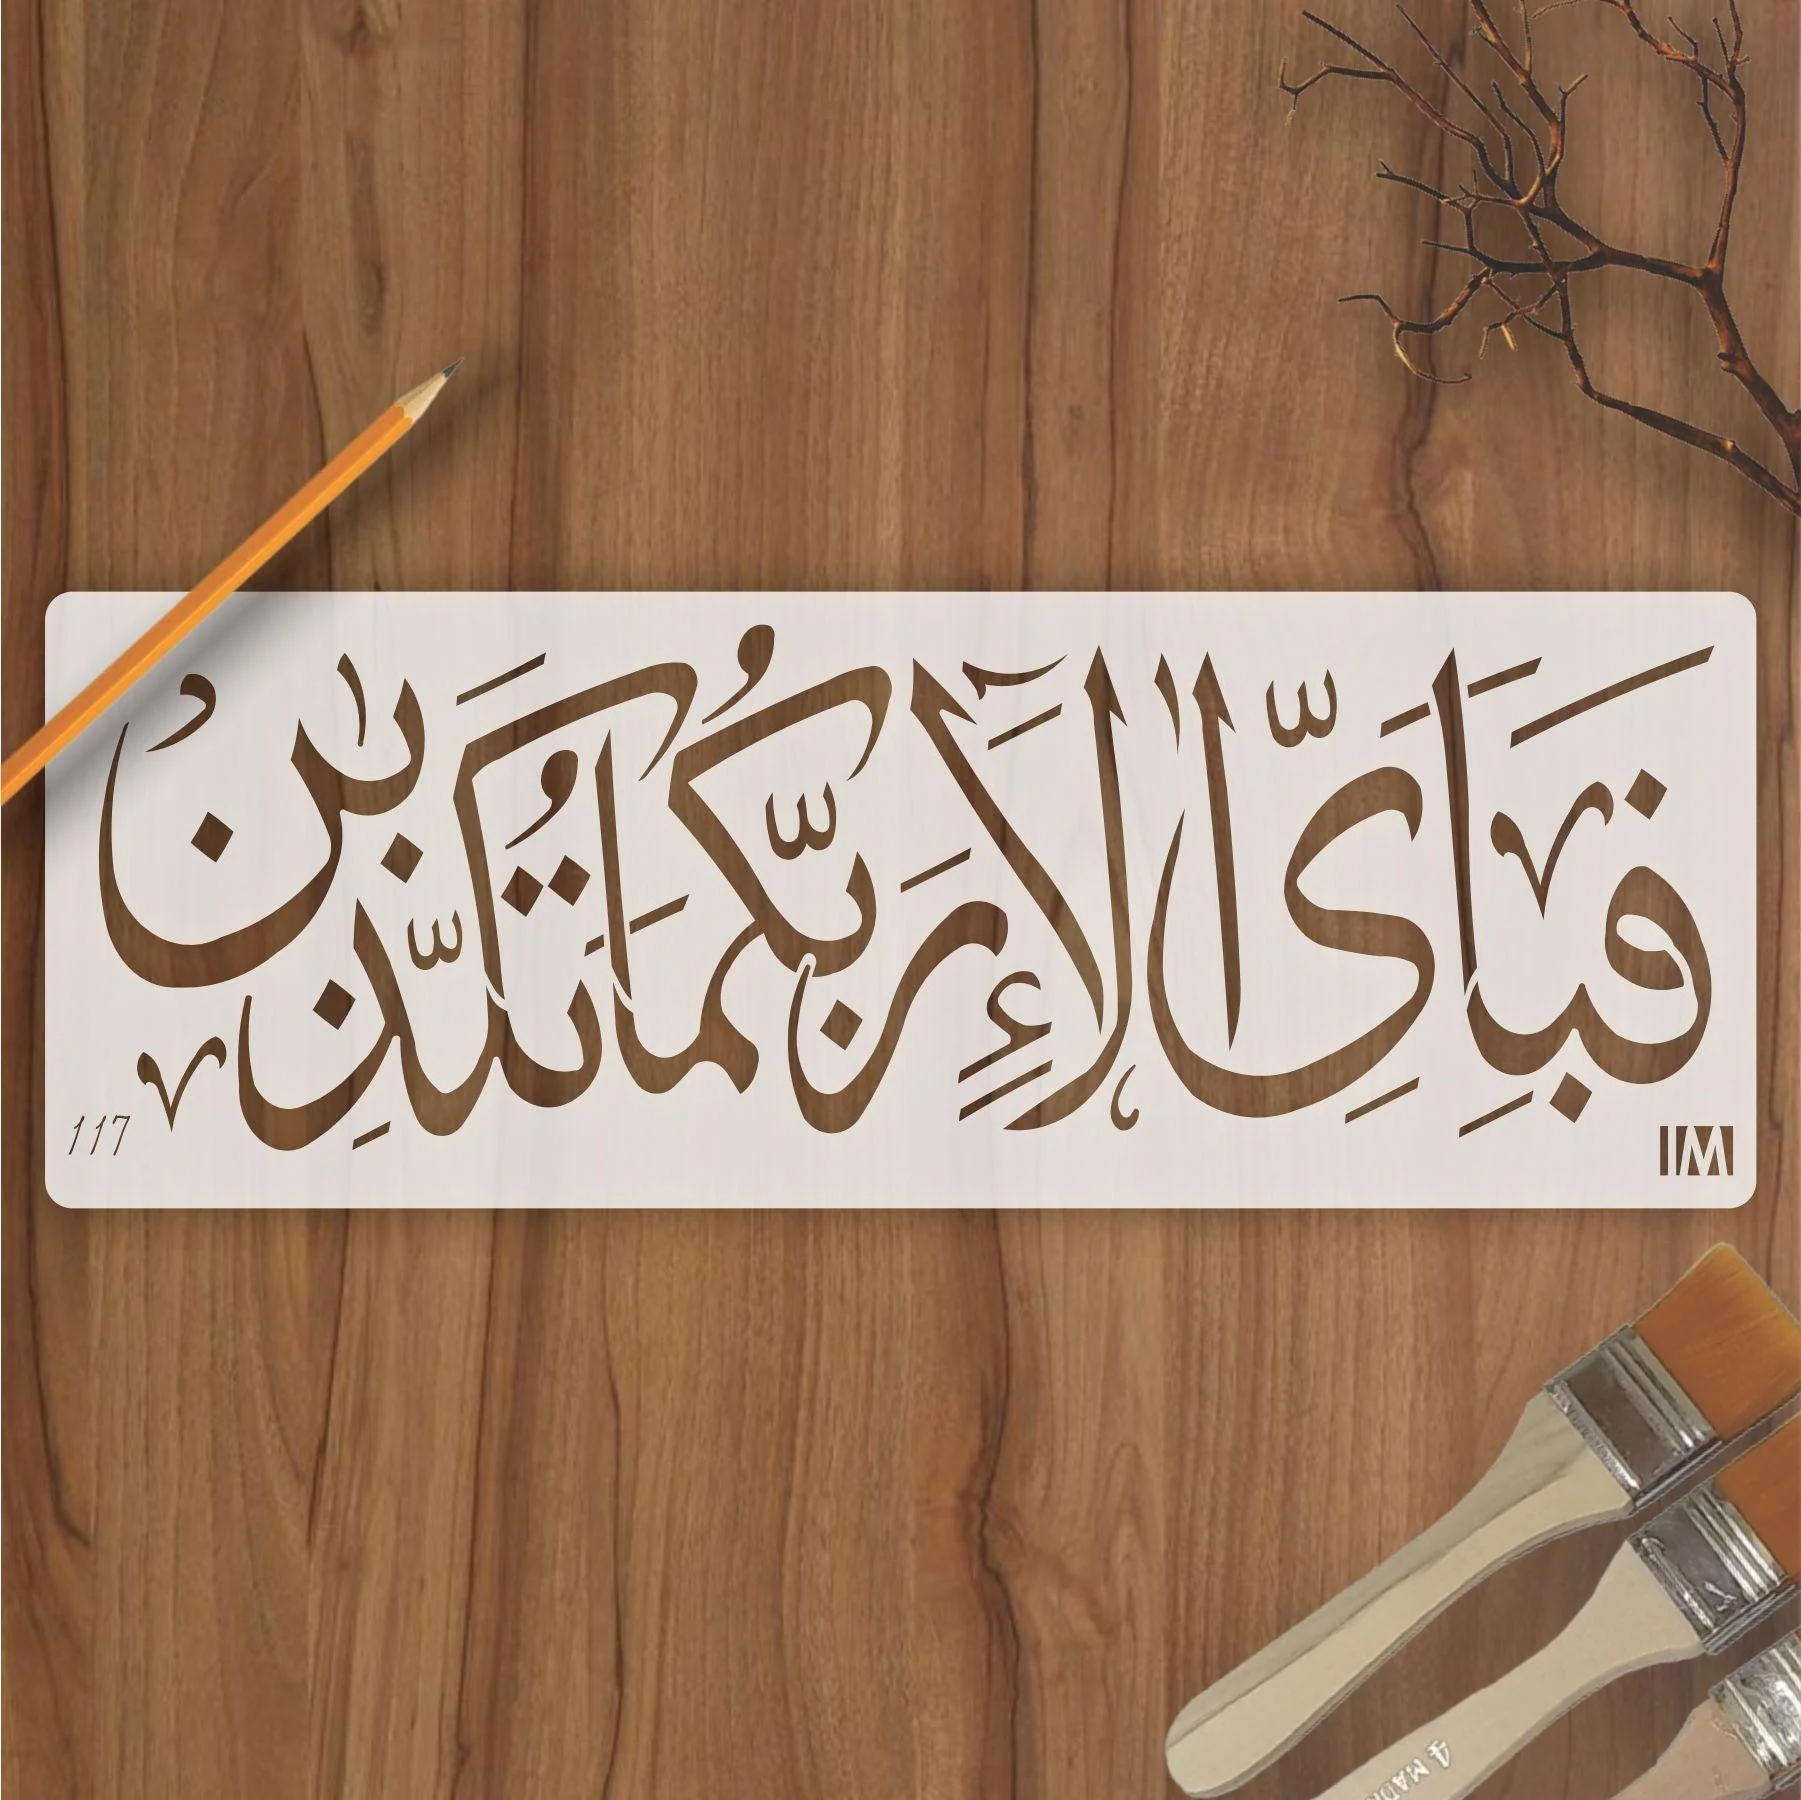 فَبِأَيِّ اٰلَآءِ رَبِّكُمَا تُكَذِّبٰنِ
117
IIM
4 MAD